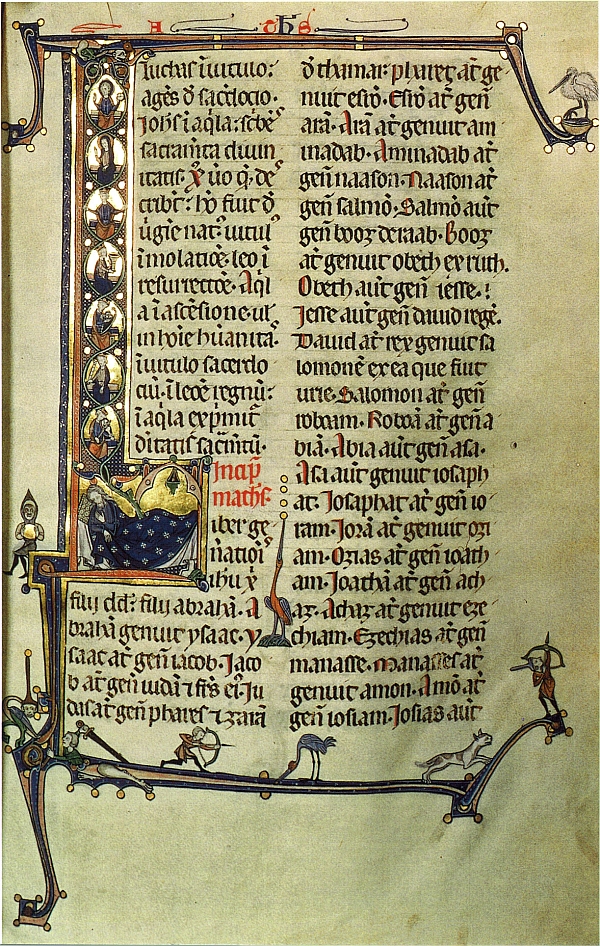 A ths
luchas ĩ uitulo:
agẽs d̃ sac̃docio.
Ioh̃s ĩ aq̃la: sc̃bẽs
sacram̃ta diuin
itatis. X̃ ũo q̃ de
cribit̃: hõ fuit d̃
ũgĩe nat⁹. uitul⁹
ĩ molatiõe. leo ĩ
resurrectõe. Aq̃l
a ĩ ascẽsione. ul̃
in hoĩe hũanitaˢ.
ĩ uitulo sacerdo
ciũ. ĩ leõe regnũ:
ĩ aq̃la exp̃mit̃
diĩtatis sac̃mtũ.
Incip̃
math̃s.
Liber ge
ñatiõĩs
ih̃u x̃
filij dd̃. filij abrahã. A
brahã genuit ysaac. y
saac at̃ geñ iacob. Iaco
b at̃ geñ iudã ⁊ fr̃s ei⁹. Iu
das at̃ geñ phares ⁊ zarã
d̃ thamar. phareʒ at̃ ge
nuit esrõ. Esrõ at̃ geñ
arã. Arã at̃ genuit am
inadab. Aminadab at̃
geñ naason. Naason at̃
geñ salmõ. Salmõ aũt
geñ booz de raab. Booz
at̃ genuit obeth ex ruth.
Obeth aũt geñ iesse.
Iesse aũt geñ dauid regẽ.
Dauid at̃ rex genuit sa
lomonẽ ex ea que fuit
urie. Salomon at̃ geñ
roboam. Roboã at̃ geñ a
biã. Abia aũt geñ asa.
Asa aũt genuit iosaph
at. Iosaphat at̃ geñ io
ram. Iorã at̃ genuit ozi
am. Ozias at̃ geñ ioath
am. Ioathã at̃ geñ ach
az. Achaz at̃ genuit eze
chiam. Ezechias at̃ geñ
manasse. Manasses at̃
genuit amon. Amõ at̃
geñ iosiam. Iosias aũt